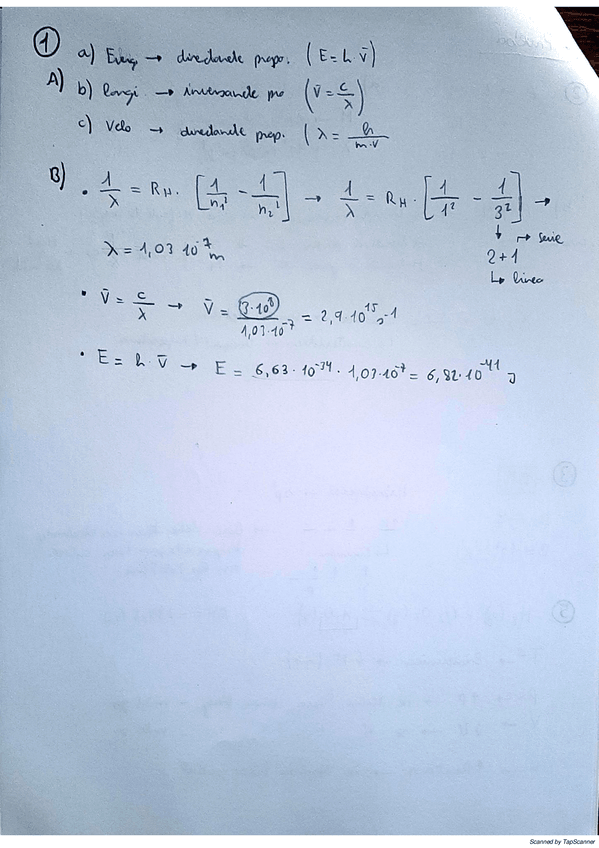 1
A)
a) Energi → directamente propo. (E = h · ν̄)
b) longi → inversamente pro (ν̄ = c/λ)
c) Velo → directamente prop. (λ = h/m·v
B)
• 1/λ = R_H · [1/n₁² - 1/n₂²] → 1/λ = R_H · [1/1² - 1/3²] →
↓ ↦ serie
2+1
↳ linea
λ = 1,03 10⁻⁷ m
• ν̄ = c/λ → ν̄ = 3·10⁸/1,03·10⁻⁷ = 2,9·10¹⁵ s⁻¹
• E = h · ν̄ → E = 6,63 · 10⁻³⁴ · 1,03·10⁻⁷ = 6,82·10⁻⁴¹ J
Scanned by TapScanner